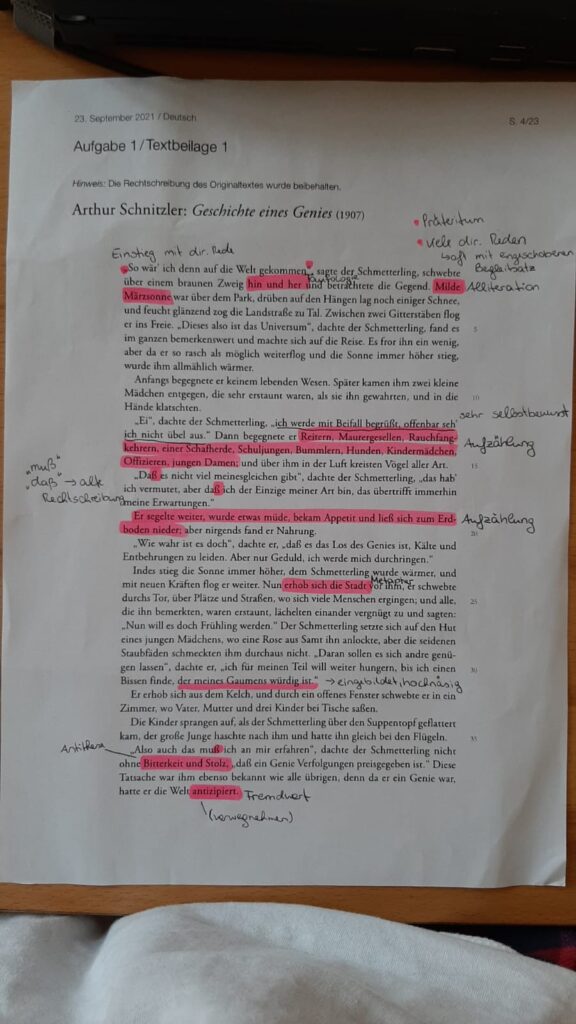 23. September 2021 / Deutsch
S. 4/23
Aufgabe 1/Textbeilage 1
Hinweis: Die Rechtschreibung des Originaltextes wurde beibehalten.
Arthur Schnitzler: Geschichte eines Genies (1907)
• Präteritum
• viele dir. Reden
↳ oft mit eingeschobenem
Begleitsatz
Einstieg mit dir. Rede
„So wär' ich denn auf die Welt gekommen“, sagte der Schmetterling, schwebte
Tautologie
über einem braunen Zweig hin und her und betrachtete die Gegend. Milde
Alliteration
Märzsonne war über dem Park, drüben auf den Hängen lag noch einiger Schnee,
und feucht glänzend zog die Landstraße zu Tal. Zwischen zwei Gitterstäben flog
er ins Freie. „Dieses also ist das Universum“, dachte der Schmetterling, fand es 5
im ganzen bemerkenswert und machte sich auf die Reise. Es fror ihn ein wenig,
aber da er so rasch als möglich weiterflog und die Sonne immer höher stieg,
wurde ihm allmählich wärmer.
Anfangs begegnete er keinem lebenden Wesen. Später kamen ihm zwei kleine
Mädchen entgegen, die sehr erstaunt waren, als sie ihn gewahrten, und in die 10
Hände klatschten.
sehr selbstbewusst
„Ei“, dachte der Schmetterling, „ich werde mit Beifall begrüßt, offenbar seh'
ich nicht übel aus.“ Dann begegnete er Reitern, Maurergesellen, Rauchfang-
Aufzählung
kehrern, einer Schafherde, Schuljungen, Bummlern, Hunden, Kindermädchen,
Offizieren, jungen Damen; und über ihm in der Luft kreisten Vögel aller Art. 15
„muß“
„daß“ → alte
Rechtschreibung
„Daß es nicht viel meinesgleichen gibt“, dachte der Schmetterling, „das hab'
ich vermutet, aber daß ich der Einzige meiner Art bin, das übertrifft immerhin
meine Erwartungen.“
Er segelte weiter, wurde etwas müde, bekam Appetit und ließ sich zum Erd-
Aufzählung
boden nieder; aber nirgends fand er Nahrung. 20
„Wie wahr ist es doch“, dachte er, „daß es das Los des Genies ist, Kälte und
Entbehrungen zu leiden. Aber nur Geduld, ich werde mich durchringen.“
Indes stieg die Sonne immer höher, dem Schmetterling wurde wärmer, und
Metapher
mit neuen Kräften flog er weiter. Nun erhob sich die Stadt vor ihm, er schwebte
durchs Tor, über Plätze und Straßen, wo sich viele Menschen ergingen; und alle, 25
die ihn bemerkten, waren erstaunt, lächelten einander vergnügt zu und sagten:
„Nun will es doch Frühling werden.“ Der Schmetterling setzte sich auf den Hut
eines jungen Mädchens, wo eine Rose aus Samt ihn anlockte, aber die seidenen
Staubfäden schmeckten ihm durchaus nicht. „Daran sollen es sich andre genü-
gen lassen“, dachte er, „ich für meinen Teil will weiter hungern, bis ich einen 30
Bissen finde, der meines Gaumens würdig ist.“ → eingebildet, hochnäsig
Er erhob sich aus dem Kelch, und durch ein offenes Fenster schwebte er in ein
Zimmer, wo Vater, Mutter und drei Kinder bei Tische saßen.
Die Kinder sprangen auf, als der Schmetterling über den Suppentopf geflattert
kam, der große Junge haschte nach ihm und hatte ihn gleich bei den Flügeln. 35
Antithese
„Also auch das muß ich an mir erfahren“, dachte der Schmetterling nicht
ohne Bitterkeit und Stolz, „daß ein Genie Verfolgungen preisgegeben ist.“ Diese
Tatsache war ihm ebenso bekannt wie alle übrigen, denn da er ein Genie war,
hatte er die Welt antizipiert. Fremdwort
(vorwegnehmen)